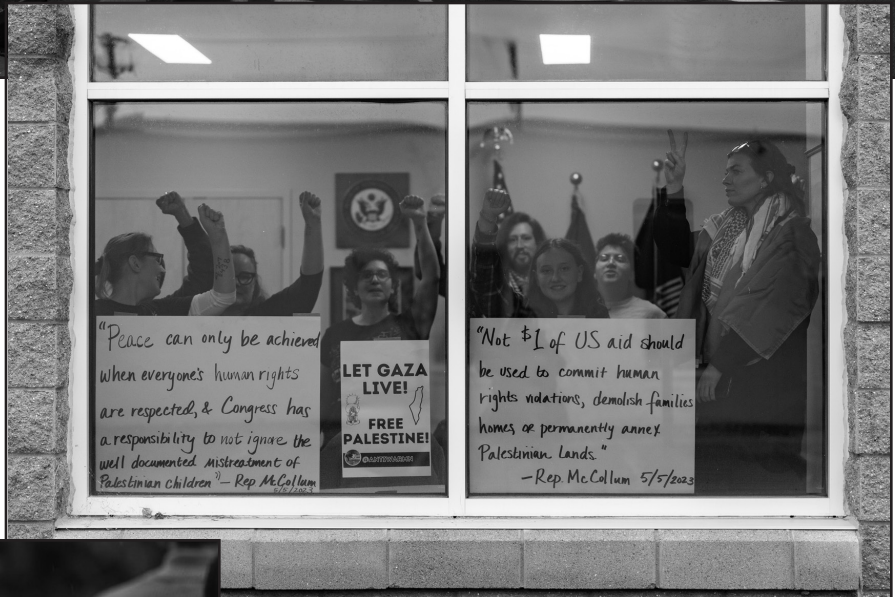 "Peace can only be achieved
when everyone's human rights
are respected, & Congress has
a responsibility to not ignore the
well documented mistreatment of
Palestinian children" — Rep McCollum
5/5/2023
LET GAZA
LIVE!
FREE
PALESTINE!
@ANTIWARMN
"Not $1 of US aid should
be used to commit human
rights violations, demolish families
homes, or permanently annex
Palestinian lands."
—Rep. McCollum 5/5/2023